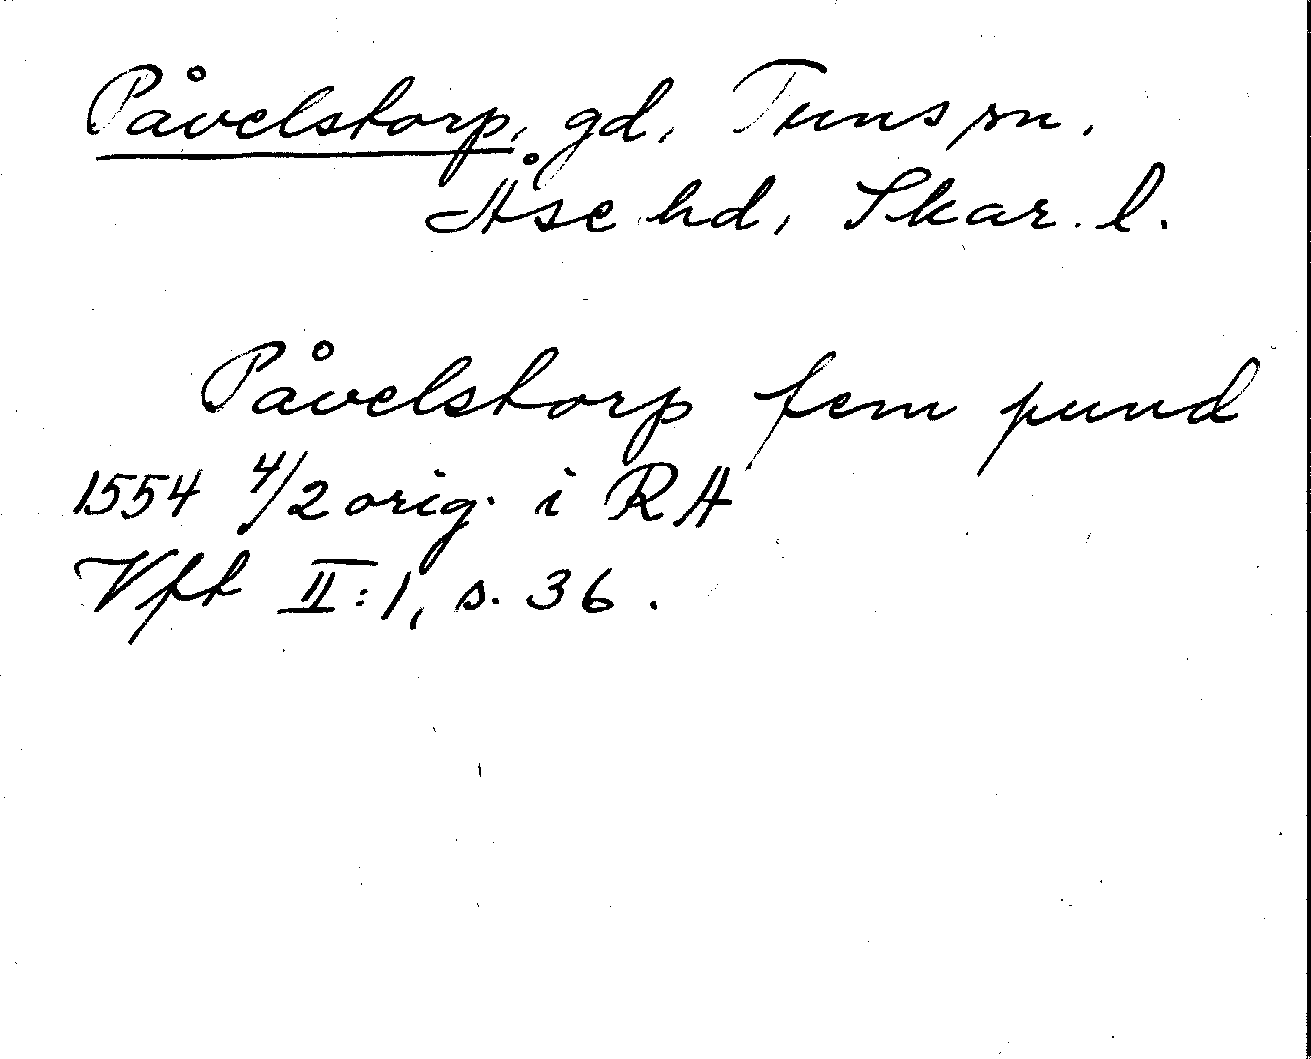 Påvelstorp, gd, Tuns sn.
Åse hd, Skar. l.
Påvelstorp fem pund
1554 4/2 orig. i RA
Vft II:1, s. 36.